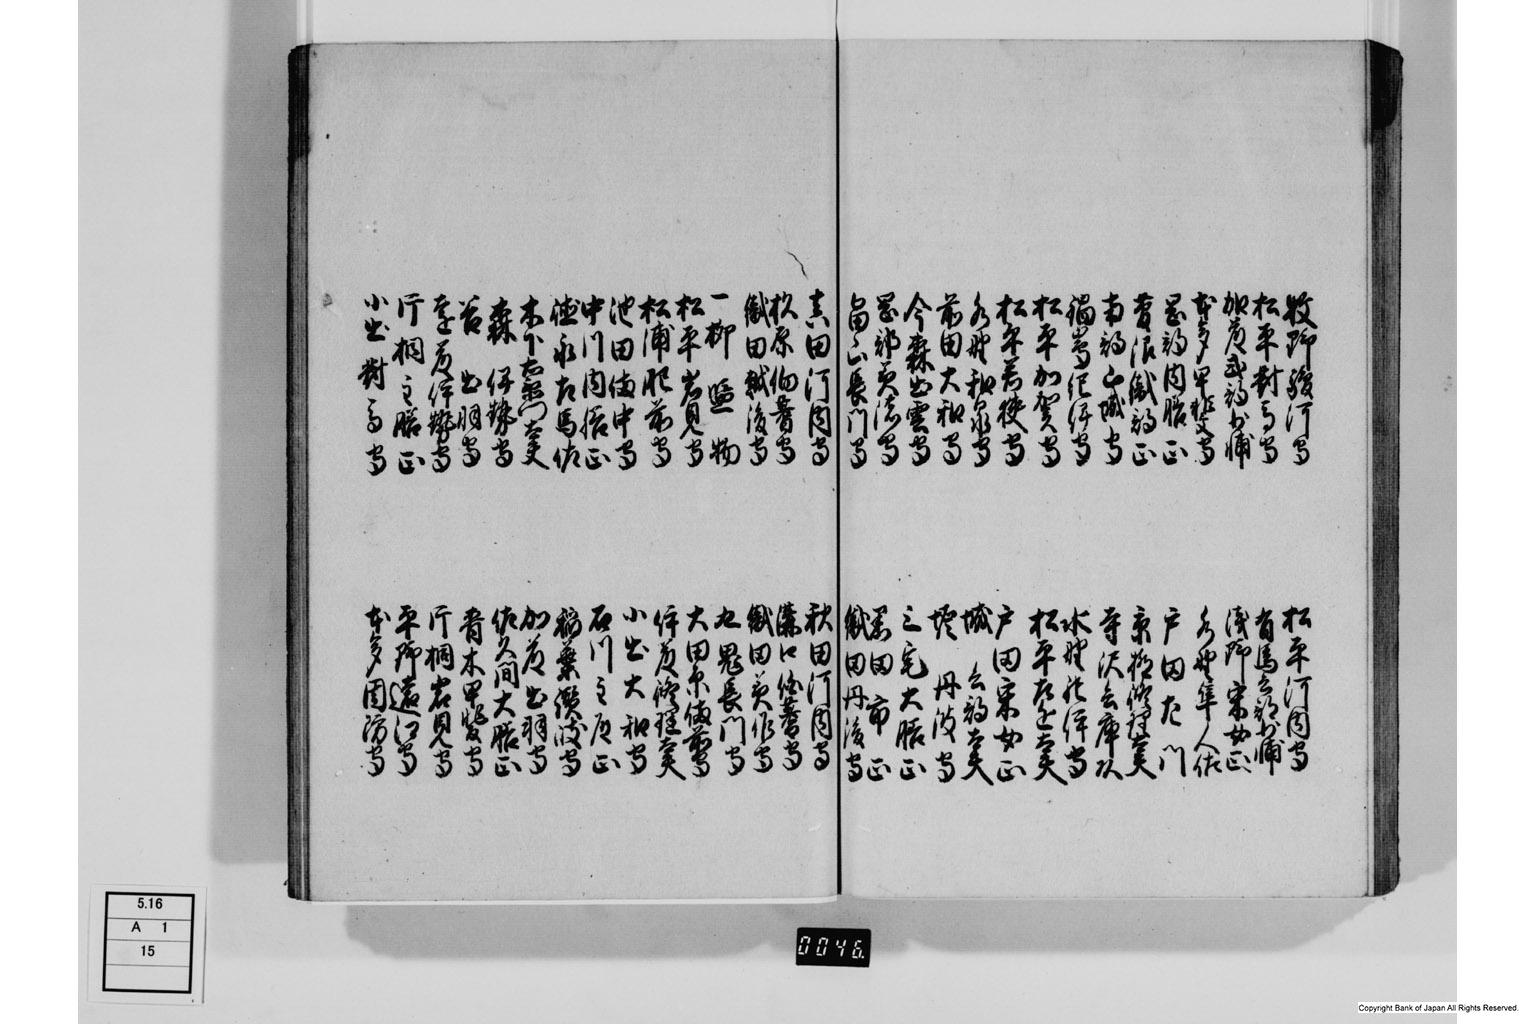 牧野駿河守
松平對馬守
加藤式部少輔
本多甲斐守
岡部内膳正
菅沼織部正
南部山城守
福嶌紀伊守
松平加賀守
松平若狭守
水野和泉守
前田大和守
金森出雲守
岡部美濃守
畠山長門守
松平河内守
有馬兵部少輔
浅野采女正
水野隼人佐
戸田左門
京極修理大夫
寺沢兵庫頭
水野伊守
松平左近大夫
戸田采女正
城 兵部大夫
堀 丹波守
三宅大膳正
黒田市正
織田丹後守
真田河内守
杉原伯耆守
織田越後守
一柳監物
松平岩見守
松浦肥前守
池田備中守
中川内膳正
徳永左馬佐
木下右衛門大夫
森 伊勢守
谷 出羽守
遠藤伊勢守
片桐主膳正
小出對馬守
秋田河内守
溝口伯耆守
織田美作守
九鬼長門守
大田原備前守
伊藤修理大夫
小出大和守
石川主殿正
稲葉淡路守
加藤出羽守
佐久間大膳正
青木甲斐守
片桐岩見守
平野遠江守
本多周防守
5.16
A 1
15
0046.
Copyright Bank of Japan All Rights Reserved.